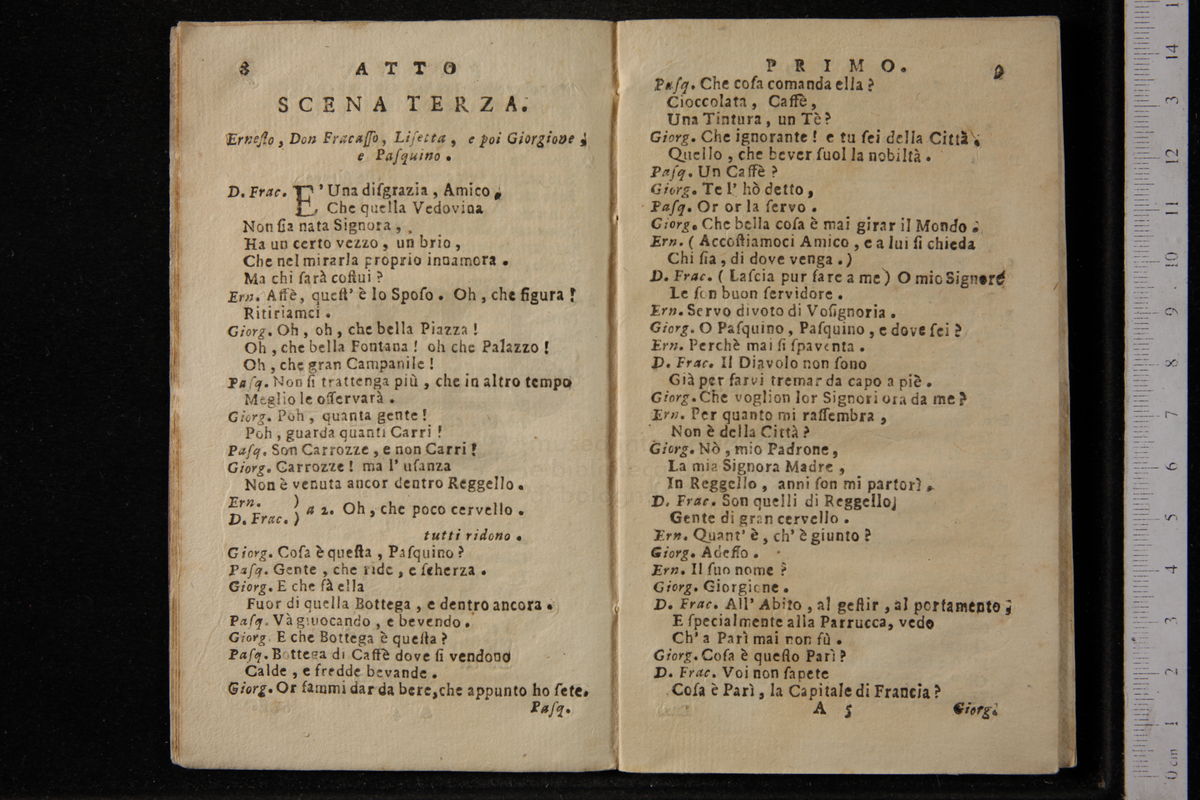 8 ATTO
SCENA TERZA.
Erneſto, Don Fracaſſo, Liſetta, e poi Giorgione;
e Paſquino.
D. Frac. E' Una diſgrazia, Amico,
Che quella Vedovina
Non ſia nata Signora,
Ha un certo vezzo, un brio,
Che nel mirarla proprio innamora.
Ma chi ſarà coſtui?
Ern. Affè, queſt' è lo Spoſo. Oh, che figura!
Ritiriamci.
Giorg. Oh, oh, che bella Piazza!
Oh, che bella Fontana! oh che Palazzo!
Oh, che gran Campanile!
Paſq. Non ſi trattenga più, che in altro tempo
Meglio le oſſervarà.
Giorg. Poh, quanta gente!
Poh, guarda quanti Carri!
Paſq. Son Carrozze, e non Carri!
Giorg. Carrozze! ma l' uſanza
Non è venuta ancor dentro Reggello.
Ern. )
D. Frac. ) a 2. Oh, che poco cervello.
tutti ridono.
Giorg. Coſa è queſta, Paſquino?
Paſq. Gente, che ride, e ſcherza.
Giorg. E che fà ella
Fuor di quella Bottega, e dentro ancora.
Paſq. Và giuocando, e bevendo.
Giorg. E che Bottega è queſta?
Paſq. Bottega di Caffè dove ſi vendono
Calde, e fredde bevande.
Giorg. Or fammi dar da bere, che appunto ho ſete.
Paſq.
PRIMO. 9
Paſq. Che coſa comanda ella?
Cioccolata, Caffè,
Una Tintura, un Tè?
Giorg. Che ignorante! e tu ſei della Città;
Quello, che bever ſuol la nobiltà.
Paſq. Un Caffè?
Giorg. Te l' hò detto,
Paſq. Or or la ſervo.
Giorg. Che bella coſa è mai girar il Mondo.
Ern. (Accoſtiamoci Amico, e a lui ſi chieda
Chi ſia, di dove venga.)
D. Frac. (Laſcia pur fare a me) O mio Signore
Le ſon buon ſervidore.
Ern. Servo divoto di Voſignoria.
Giorg. O Paſquino, Paſquino, e dove ſei?
Ern. Perchè mai ſi ſpaventa.
D. Frac. Il Diavolo non ſono
Già per farvi tremar da capo a piè.
Giorg. Che voglion lor Signori ora da me?
Ern. Per quanto mi raſſembra,
Non è della Città?
Giorg. Nò, mio Padrone,
La mia Signora Madre,
In Reggello, anni ſon mi partorì.
D. Frac. Son quelli di Reggello,
Gente di gran cervello.
Ern. Quant' è, ch' è giunto?
Giorg. Adeſſo.
Ern. Il ſuo nome?
Giorg. Giorgione.
D. Frac. All' Abito, al geſtir, al portamento;
E ſpecialmente alla Parrucca, vedo
Ch' a Parì mai non fù.
Giorg. Coſa è queſto Parì?
D. Frac. Voi non ſapete
Coſa è Parì, la Capitale di Francia?
A 5 Giorg.